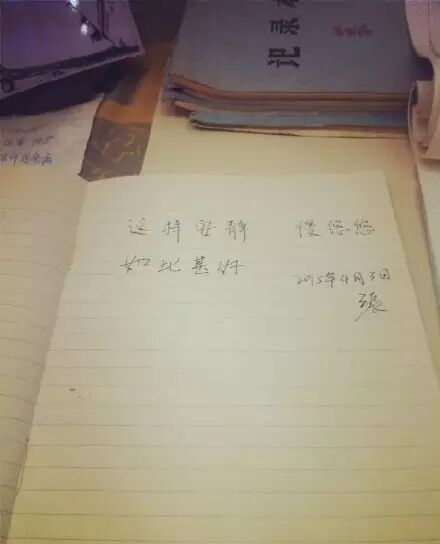 记录
这样安静 慢悠悠
如此甚好
2015年4月3日
張